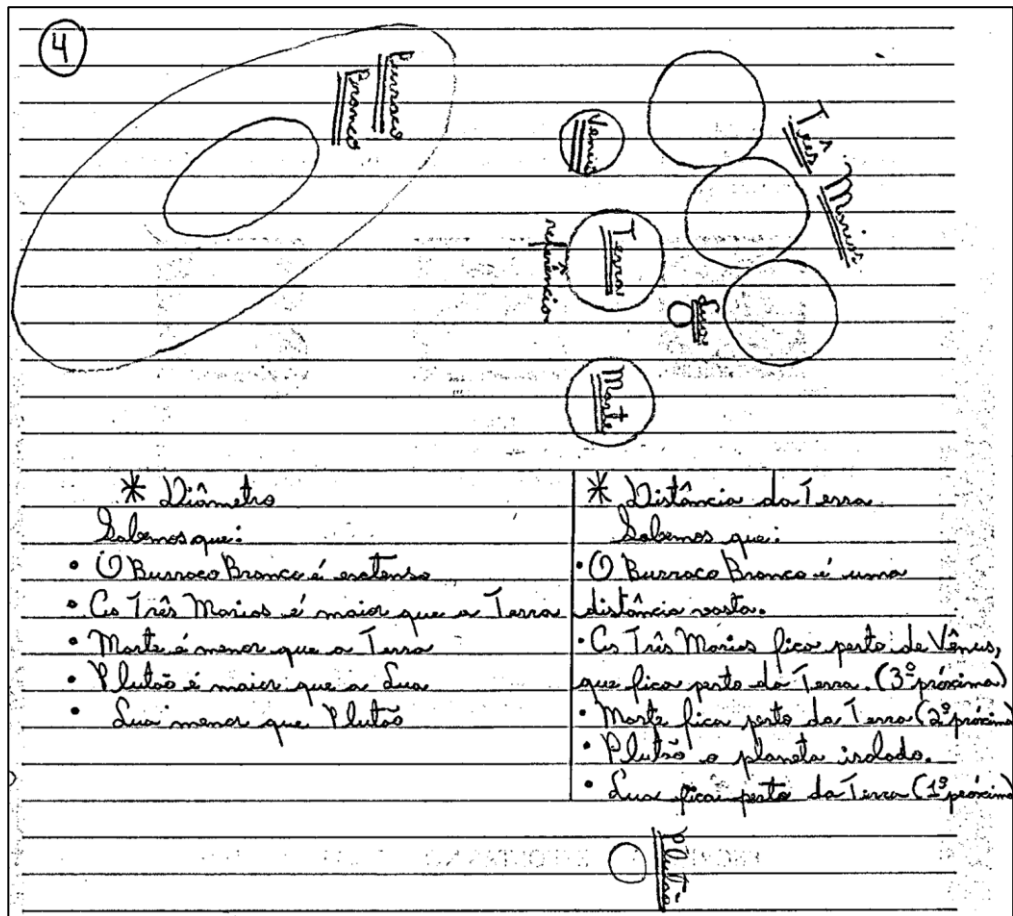 4
Burraco
Branco
Vênus
Três Marias
Terra
referência
Lua
Marte
* Diâmetro
Sabemos que:
• O Burraco Branco é esatenso
• As Três Marias é maior que a Terra
• Marte é menor que a Terra
• Plutão é maior que a Lua
• Lua menor que Plutão
* Distância da Terra
Sabemos que:
• O Burraco Branco é uma
distância vasta.
• As Três Marias fica perto de Vênus,
que fica perto da Terra. (3º próxima)
• Marte fica perto da Terra (2º próxima)
• Plutão o planeta isolado.
• Lua fica perto da Terra (1º próxima)
Plutão